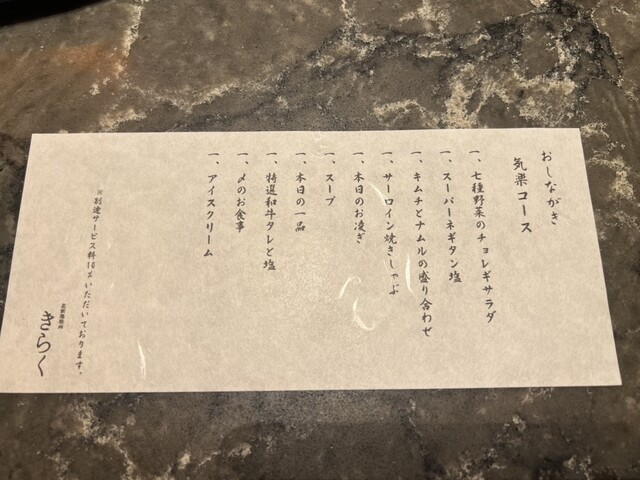 おしながき
気楽コース
一、七種野菜のチョレギサラダ
一、スーパーネギタン塩
一、キムチとナムルの盛り合わせ
一、サーロイン焼きしゃぶ
一、本日のお凌ぎ
一、スープ
一、本日の一品
一、特選和牛タレと塩
一、〆のお食事
一、アイスクリーム
※別途サービス料10%いただいております。
きらく